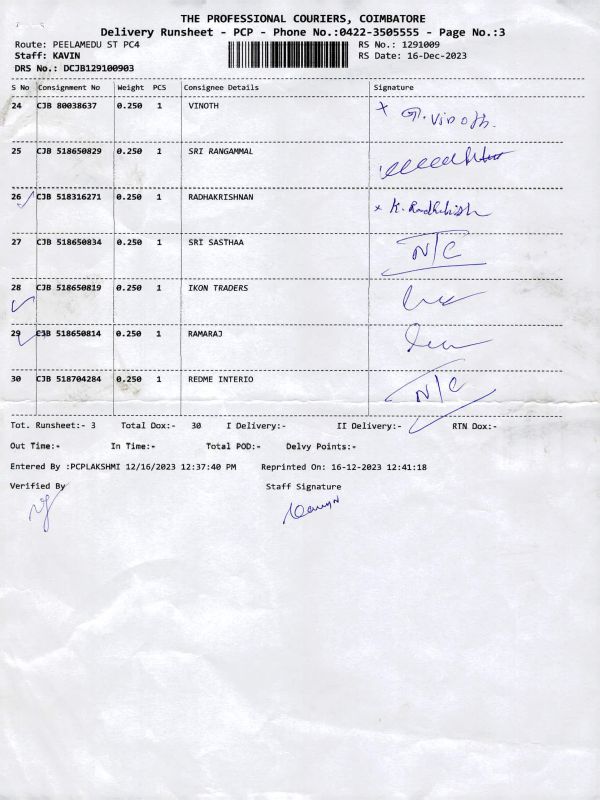 THE PROFESSIONAL COURIERS, COIMBATORE
Delivery Runsheet - PCP - Phone No.:0422-3505555 - Page No.:3
Route: PEELAMEDU ST PC4 RS No.: 1291009
Staff: KAVIN RS Date: 16-Dec-2023
DRS No.: DCJB129100903
S No Consignment No Weight PCS Consignee Details Signature
24 CJB 80038637 0.250 1 VINOTH x G. Vinoth.
25 CJB 518650829 0.250 1 SRI RANGAMMAL
26 CJB 518316271 0.250 1 RADHAKRISHNAN x K. Radhakish
27 CJB 518650834 0.250 1 SRI SASTHAA N/C
28 CJB 518650819 0.250 1 IKON TRADERS
29 CJB 518650814 0.250 1 RAMARAJ
30 CJB 518704284 0.250 1 REDME INTERIO N/C
Tot. Runsheet:- 3 Total Dox:- 30 I Delivery:- II Delivery:- RTN Dox:-
Out Time:- In Time:- Total POD:- Delvy Points:-
Entered By :PCPLAKSHMI 12/16/2023 12:37:40 PM Reprinted On: 16-12-2023 12:41:18
Verified By Staff Signature